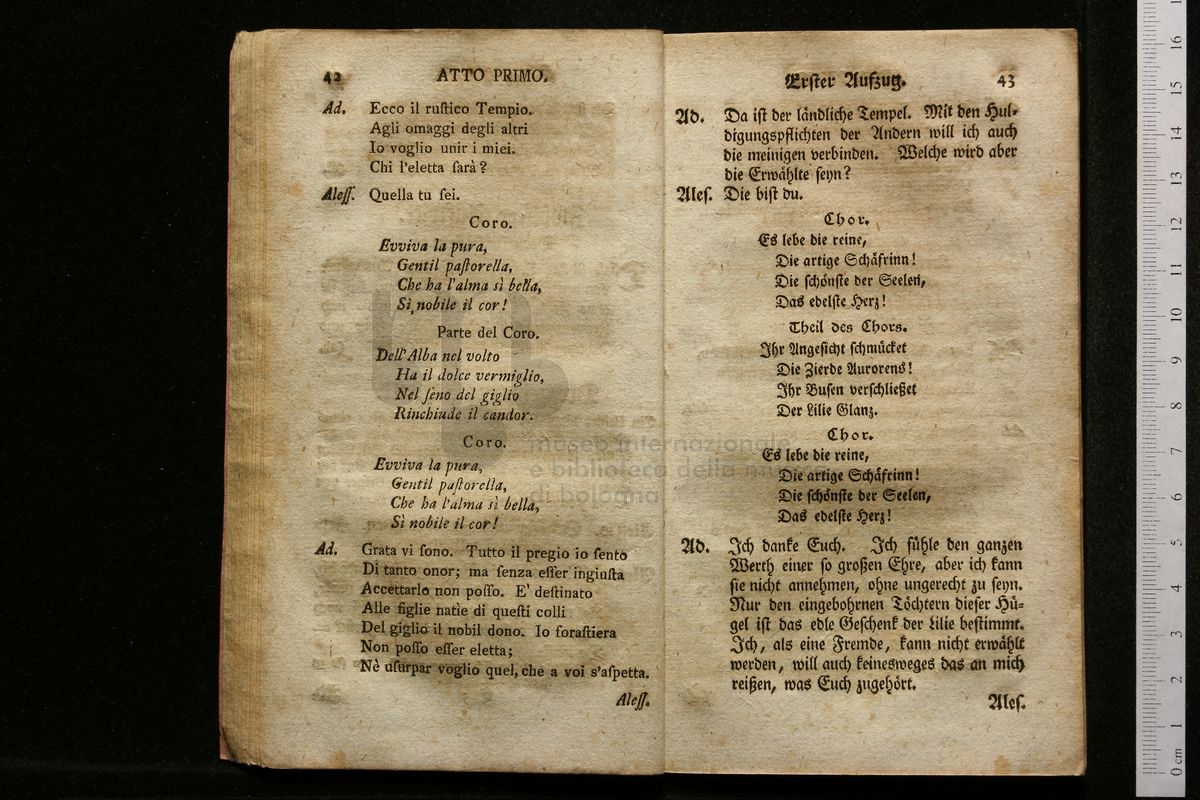 42 ATTO PRIMO.
Ad. Ecco il ruſtico Tempio.
Agli omaggi degli altri
Io voglio unir i miei.
Chi l'eletta ſarà?
Aleſſ. Quella tu ſei.
Coro.
Evviva la pura,
Gentil paſtorella,
Che ha l'alma sì bella,
Sì nobile il cor!
Parte del Coro.
Dell'Alba nel volto
Ha il dolce vermiglio,
Nel ſeno del giglio
Rinchiude il candor.
Coro.
Evviva la pura,
Gentil paſtorella,
Che ha l'alma sì bella,
Sì nobile il cor!
Ad. Grata vi ſono. Tutto il pregio io ſento
Di tanto onor; ma ſenza eſſer ingiuſta
Accettarlo non poſſo. E' deſtinato
Alle figlie natìe di queſti colli
Del giglio il nobil dono. Io foraſtiera
Non poſſo eſſer eletta;
Nè uſurpar voglio quel, che a voi s'aſpetta.
Aleſſ.
Erſter Aufzug. 43
Ad. Da iſt der ländliche Tempel. Mit den Hul-
digungspflichten der Andern will ich auch
die meinigen verbinden. Welche wird aber
die Erwählte ſeyn?
Aleſ. Die biſt du.
Chor.
Es lebe die reine,
Die artige Schäfrinn!
Die ſchönſte der Seelen,
Das edelſte Herz!
Theil des Chors.
Ihr Angeſicht ſchmücket
Die Zierde Aurorens!
Ihr Buſen verſchließet
Der Lilie Glanz.
Chor.
Es lebe die reine,
Die artige Schäfrinn!
Die ſchönſte der Seelen,
Das edelſte Herz!
Ad. Ich danke Euch. Ich fühle den ganzen
Werth einer ſo großen Ehre, aber ich kann
ſie nicht annehmen, ohne ungerecht zu ſeyn.
Nur den eingebohrnen Töchtern dieſer Hü-
gel iſt das edle Geſchenk der Lilie beſtimmt.
Ich, als eine Fremde, kann nicht erwählt
werden, will auch keinesweges das an mich
reißen, was Euch zugehört.
Aleſ.
museo internazionale
e biblioteca della musica
di bologna
0 cm 1 2 3 4 5 6 7 8 9 10 11 12 13 14 15 16